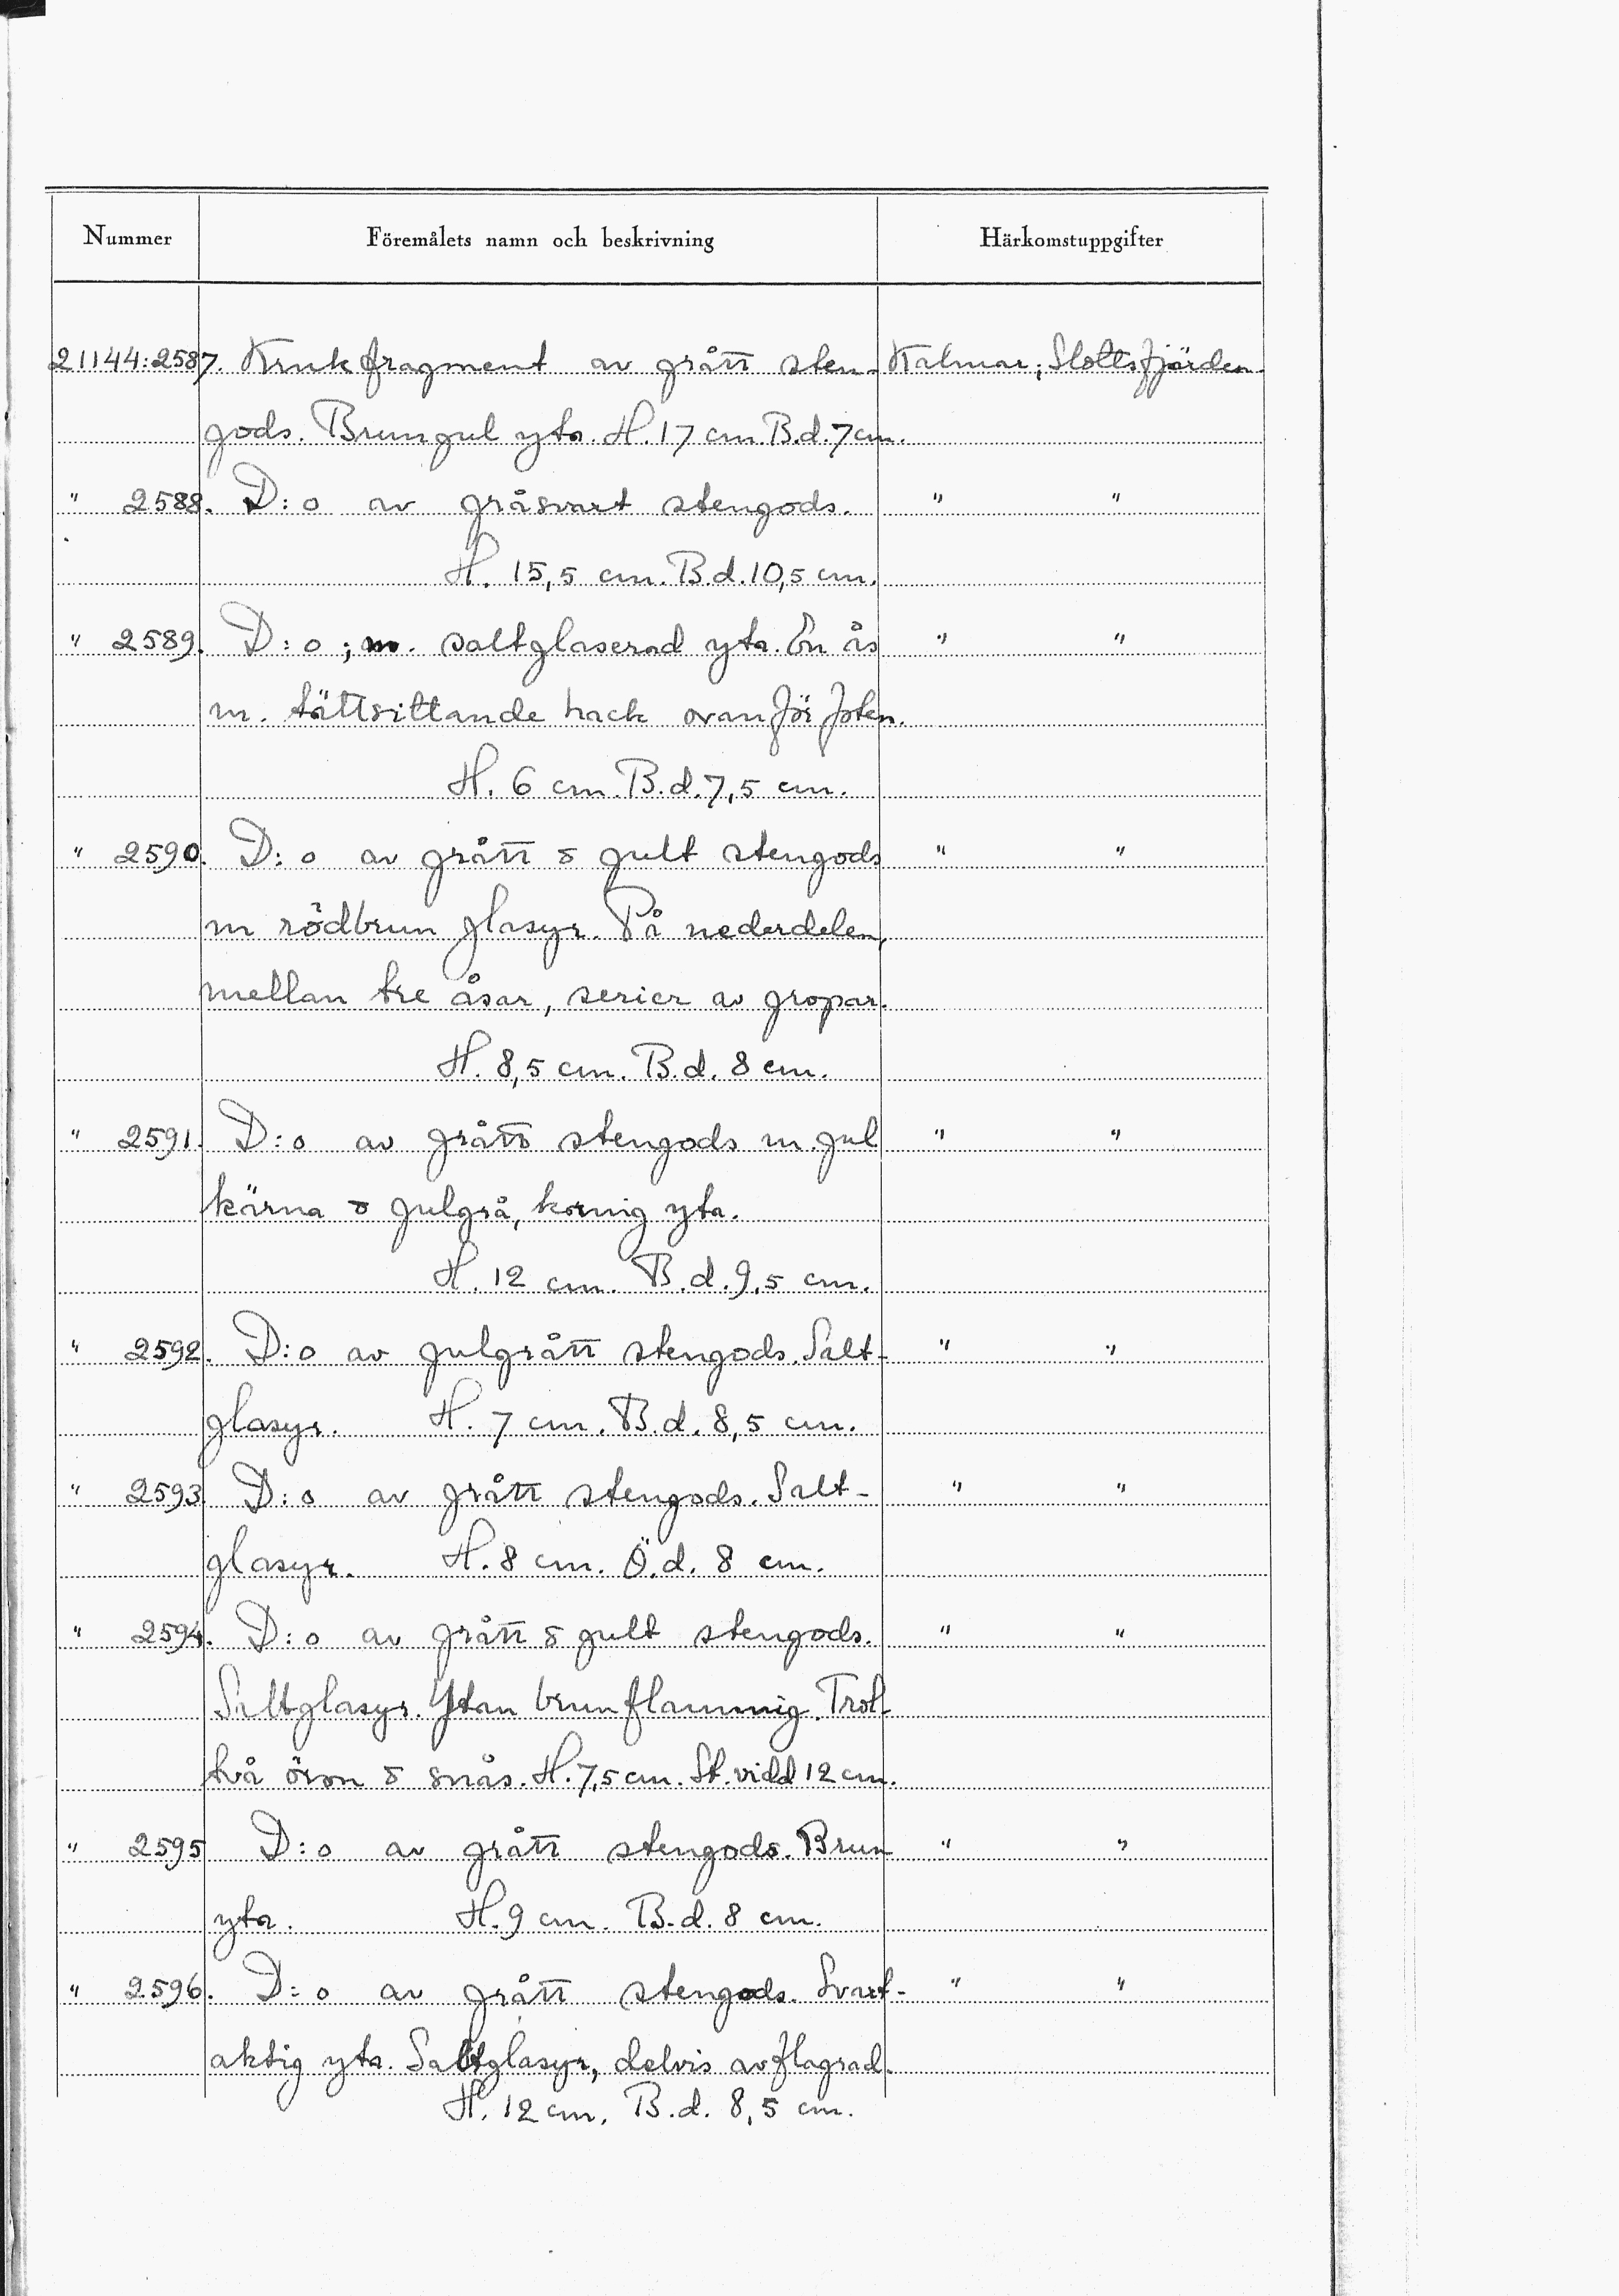 Nummer Föremålets namn och beskrivning Härkomstuppgifter
21144:2587. Krukfragment av grått sten- Kalmar; Slottsfjärden.
gods. Brungul yta. H. 17 cm. B.d. 7 cm.
" 2588. D:o av gråsvart stengods. " "
H. 15,5 cm. B.d. 10,5 cm.
" 2589. D:o; m. saltglaserad yta. En ås " "
m. tättsittande hack ovanför foten.
H. 6 cm. B.d. 7,5 cm.
" 2590. D:o av grått o gult stengods " "
m rödbrun glasyr. På nederdelen,
mellan tre åsar, serier av gropar.
H. 8,5 cm. B.d. 8 cm.
" 2591. D:o av grått stengods m. gul " "
kärna o gulgrå, kornig yta.
H. 12 cm. B.d. 9,5 cm.
" 2592. D:o av gulgrått stengods. Salt- " "
glasyr. H. 7 cm. B.d. 8,5 cm.
" 2593 D:o av grått stengods. Salt- " "
glasyr. H. 8 cm. Ö.d. 8 cm.
" 2594. D:o av grått o gult stengods. " "
Saltglasyr. Ytan brunflammig. Trol.
två öron o snås. H. 7,5 cm. St. vidd 12 cm.
" 2595 D:o av grått stengods. Brun " "
yta. H. 9 cm. B.d. 8 cm.
" 2596. D:o av grått stengods. Svart- " "
aktig yta. Saltglasyr, delvis avflagrad.
H. 12 cm. B.d. 8,5 cm.